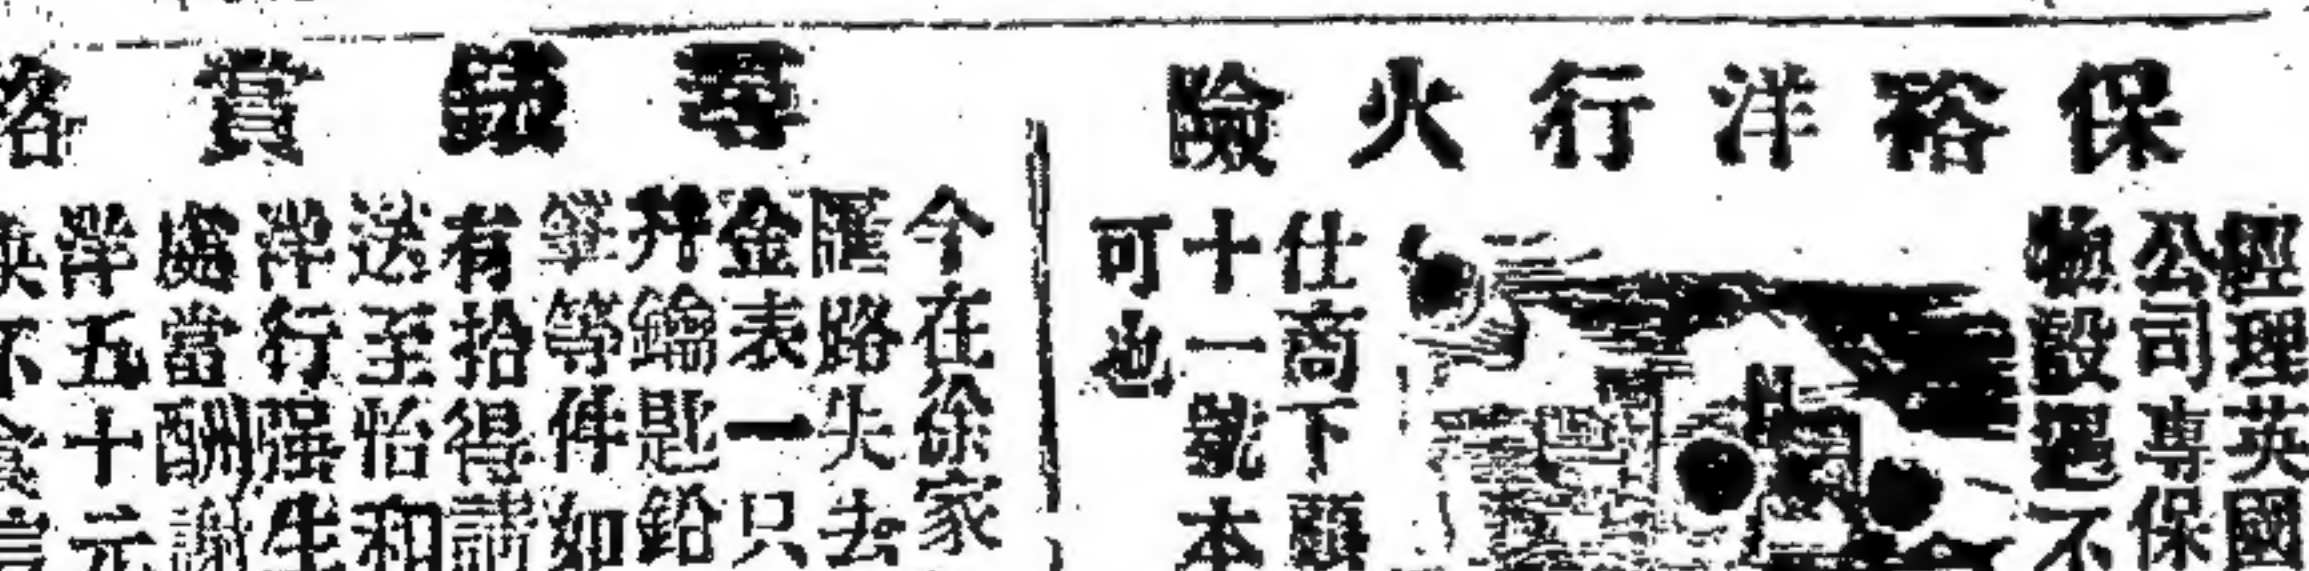 保裕洋行火險
經理英國
公司專保
物設遇不
仕商下顧
十一號本
可也
尋錶賞格
今在徐家
匯路失去
金表一只
幷鑰匙鉛
筆等件如
有拾得請
送至怡和
洋行强生
處當酬謝
洋五十元
不食言